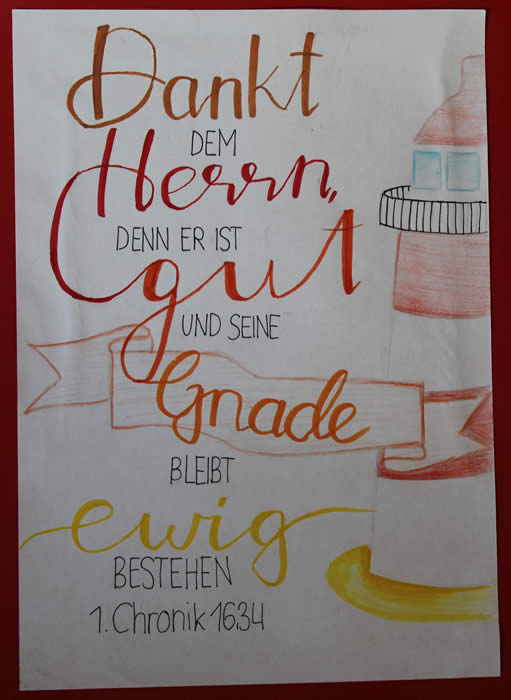 Dankt
DEM
Herrn,
DENN ER IST
gut
UND SEINE
Gnade
BLEIBT
ewig
BESTEHEN
1. Chronik 16.34